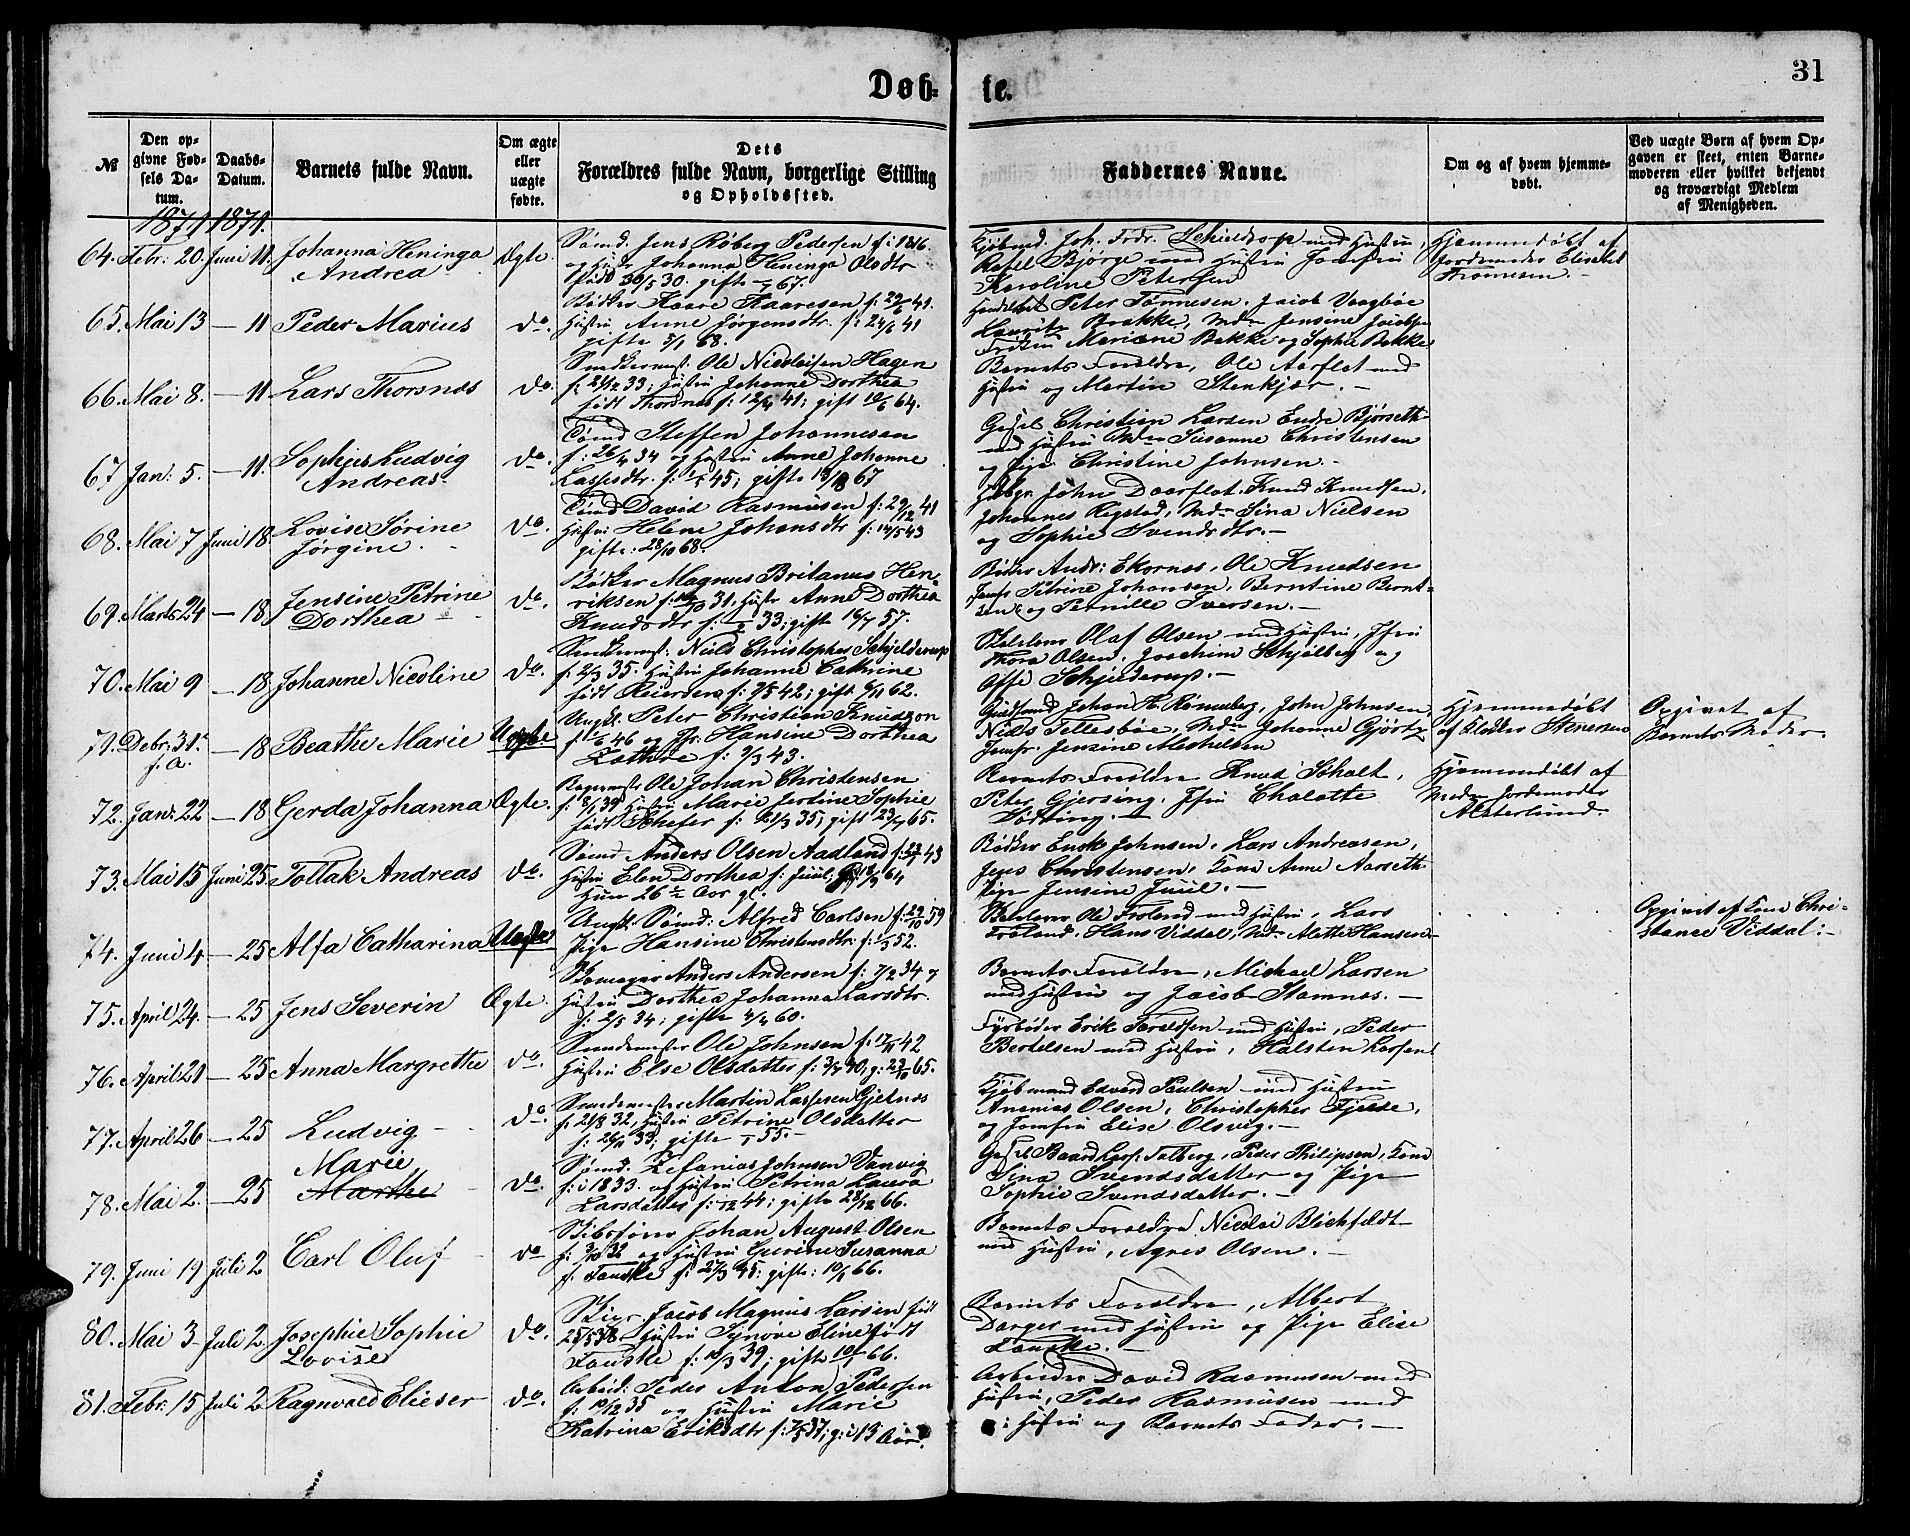 Døb-
te.
31
№
Den op-
givne Fød-
sels Da-
tum.
Daabs-
Datum.
Barnets fulde Navn.
Om ægte
eller
uægte
fødte.
Dets
Forældres fulde Navn, borgerlige Stilling
og Opholdssted.
Faddernes Navne.
Om og af hvem hjemme-
døbt.
Ved uægte Børn af hvem Op-
gaven er skeet, enten Barne-
moderen eller hvilket bekjendt
og troværdigt Medlem
af Menigheden.
1871. 1871.
64. Febr: 20. Juni 11. Johanna Heninga
Andrea
Ægte
Sømd. Jens Røberg Pedersen f: i 1816.
og Hustr Johanna Heninga Olsdtr
født 30/5 30. gifte 67.
Kjøbmd. Joh. Frdr. Schieldrop med Hustru,
Bjørge med Hustru Jomfru
Karoline Petersen
Hjemmedøbt af
Jordemoder Elisabet
Thomesen.
65. Mai 13 — 11 Peder Marius do.
Bødker Kaare Kaaresen
Hustru Anne Jørgensdtr.
gifte 68.
Peter Tønnesen, Jacob Vaagbøe
Lauritz Brakke, Mdm Jensine Jacobsen
Frøken Mariane Bakke og Sophie Bakke
66. Mai 8. — 11 Lars Thorsnæs do.
Snedkermest. Ole Nicolaisen Hagen
33; Hustru Johanne Dorthea
født Thorsnæs f: 12/4 41; gift 64.
Barnets Forældre, Ole Aarflot med
Hustru og Martin Stenkjær.
67 Jan: 5. — 11. Sophus Ludvig
Andreas.
do.
Tømd Steffen Johannesen
f: 26/4 34 og Hustru Anne Johanne
Lassesdtr. 45; gifte 67
Christian Larsen Endre Bjørseth
med Hustru Mdm Susanne Christensen
og Pige Christine Johnsen.
68. Mai 7 Juni 18 Lovise Sørine
Jørgine.
do.
David Rasmusen f: 29/12 41
Hustru Helene Johansdtr f: 14/5 43
gifte: 28/10 68.
John Daarflot. Knud Knudsen.
Johannes Rystad, Mdm Sina Nielsen
og Sophie Svendsdtr.
69. Marts 24 — 18 Jensine Petrine
Dorthea
do.
Bødker Magnus Britanus Hen-
riksen 31. Hustr Anne Dorthea
Knudsdtr 33; gift 16/7 57.
Bødker Andr: Ekornes, Ole Knudsen
Petrine Johansen, Berntine Bernt-
sen og Pernille Iversen.
70. Mai 9 — 18 Johanne Nicoline do.
Niels Christopher Schjelderup
f: 2/3 35. Hustru Johanne Cathrine
født Reiersen 42; gift 62.
Olaf Olsen med Hustru, Jfru
Thora Olsen, Joachim Schjølberg og
Schjelderup.
71. Debr: 31.
f. A.
— 18 Beathe Marie Uægte
Ungk. Peter Christian Knudzon
46 og Hansine Dorthea
f: 9/3 43.
Johan H. Rønneberg, John Johnsen
Niels Tellesbøe, Mdm Johanne Gjørtz
Jomfr. Jensine Michelsen
Hjemmedøbt
af Stenersen
Opgivet af
Barnets Moder.
72. Jan: 22 — 18 Gerda Johanna Ægte.
Ole Johan Christensen
Hustru Marie Jertine Sophie
født Schefer 35; gift 23/4 65.
Barnets Forældre Knud Schalt,
Peter Gjersing, Jfru Chalotte
Hjemmedøbt af
Mdm Jordemoder
Alsterlund.
73. Mai 15 Juni 25 Tollak Andreas do.
Sømd Anders Olsen Aadland
Hustru Elen Dorthea f. Juul; 64
Hun 26 ½ Aar gl.
Bødker Enok Johnsen, Lars Andreasen,
Jens Christensen, Kone Anne Aarseth
Pige Jensine Juul.
74. Juni 4 — 25 Alfa Catharina Uægte
Ungk. Sømd: Alfred Carlsen f: 29/10 59
Pige Hansine Christensdtr: 52.
Ole Froland med Hustru, Lars
Froland, Hans Viddal, Mdm Alette Hansen
Opgivet af Kone Chri-
stance Viddal:
75. April 24. — 25 Jens Severin Ægte.
Skomager Anders Andersen f: 7/2 34
Hustru Dorthea Johanna Larsdtr.
f: 2/5 34; gifte 60.
Barnets Forældre, Michael Larsen
med Hustru og Jacob Stamnæs.
76. April 21 — 25 Anna Margrethe do.
Ole Johnsen f: 17/11 42
Hustru Else Olsdatter 40, g: 23/10 65.
Fyrbøder Erik med Hustru, Peder
Bertelsen med Hustru, Halsten Larsen
77. April 26 — 25 Ludvig do.
Martin Lassesen Gjetnæs
f: 21/8 32, Hustru Petrine Olsdatter
33; gifte 55.
Kjøbmand Edvard Paulsen med Hustru
Ananias Olsen, Christopher Fjelde,
og Jomfru Elise Olsvig.
78. Mai 2. — 25 Marie
Marthe
do.
Sømd. Zefanias Johnsen Vanvig
f: i 1833. og Hustru Petrina Laura
Larsdatter 44; gifte 28/12 66.
Baard Larss. Talberg, Peder Philipsen, Kone
Sina Svendsdatter og Pige
Sophie Svendsdatter.
79. Juni 19 Juli 2 Carl Oluf do
Johan August Olsen
32 og Hustru Gurine Susanna
f. Fauske f: 27/3 45: gifte: 10/1 66.
Barnets Forældre Nicolai Blichfeldt
med Hustru, Agnes Olsen.
80. Mai 3 Juli 2 Josephie Sophie
Lovise
do.
Jacob Magnus Larsen født
38 Hustru Synøve Eline født
Fauske 39; gifte 66.
Barnets Forældre, Albert
Danger med Hustru og Pige Elise
Fauske.
81. Febr: 15 Juli 2 Ragnvald Elieser do.
Arbeid: Peder Anton Pedersen
f. 10/12 35 og Hustru Marie
Katrina Eriksdtr 37; g: i 13 Aar.
Arbeider David Rasmusen med
Hustru, Peder Rasmusen med
Hustru og Barnets Fader.